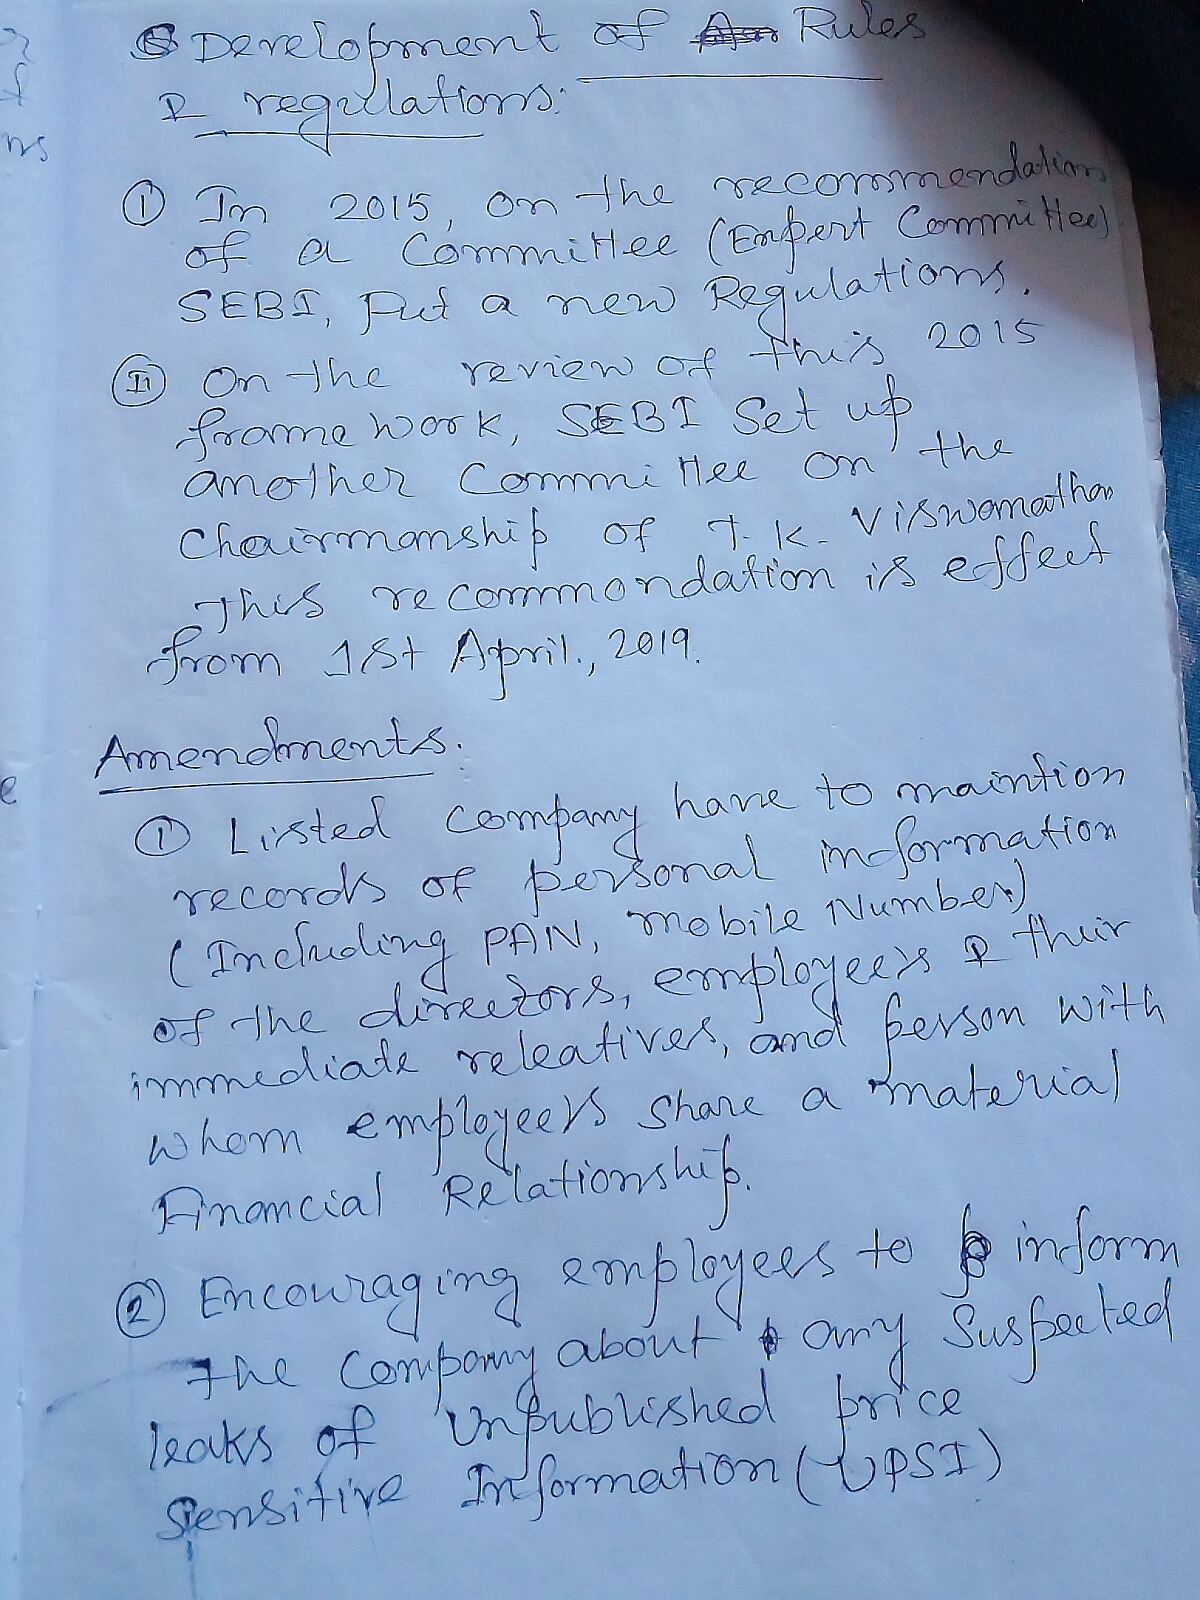 Development of Rules
& regulations:
① In 2015, on the recommendation
of a Committee (Expert Committee)
SEBI, Put a new Regulations.
Ⅱ On the review of this 2015
frame work, SEBI Set up
another Committee on the
Chairmanship of T.K. Viswanathan
This recommondation is effect
from 1st April., 2019.
Amendments:
① Listed company have to maintion
records of personal information
(Including PAN, mobile Number)
of the directors, employees & their
immediate releatives, and person with
whom employees share a material
Financial Relationship.
② Encouraging employees to inform
the company about any suspected
leaks of unpublished price
sensitive Information (UPSI)